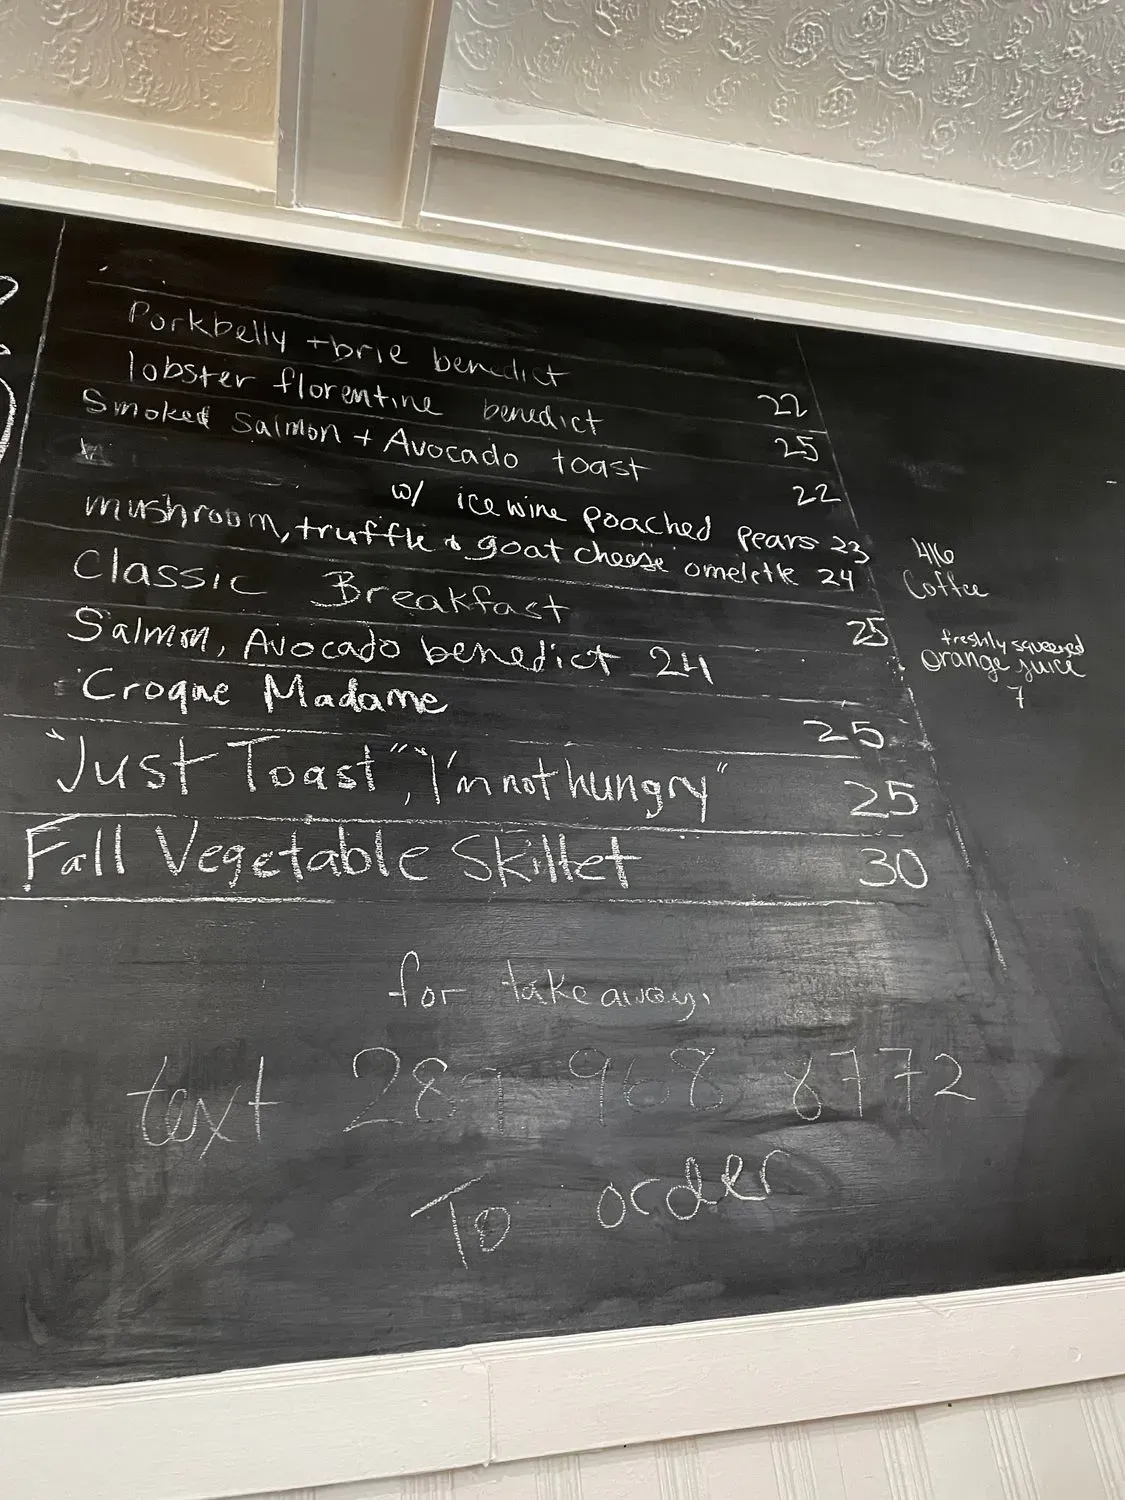 Porkbelly + brie benedict 22
lobster florentine benedict 25
Smoked Salmon + Avocado toast 22
w/ ice wine poached pears 23
mushroom, truffle & goat cheese omelette 24
Classic Breakfast 25
Salmon, Avocado benedict 24
Croque Madame 25
"Just Toast", "I'm not hungry" 25
Fall Vegetable Skillet 30
416
Coffee
freshly squeezed
orange juice
7
for take away,
text 289 968 8772
To order